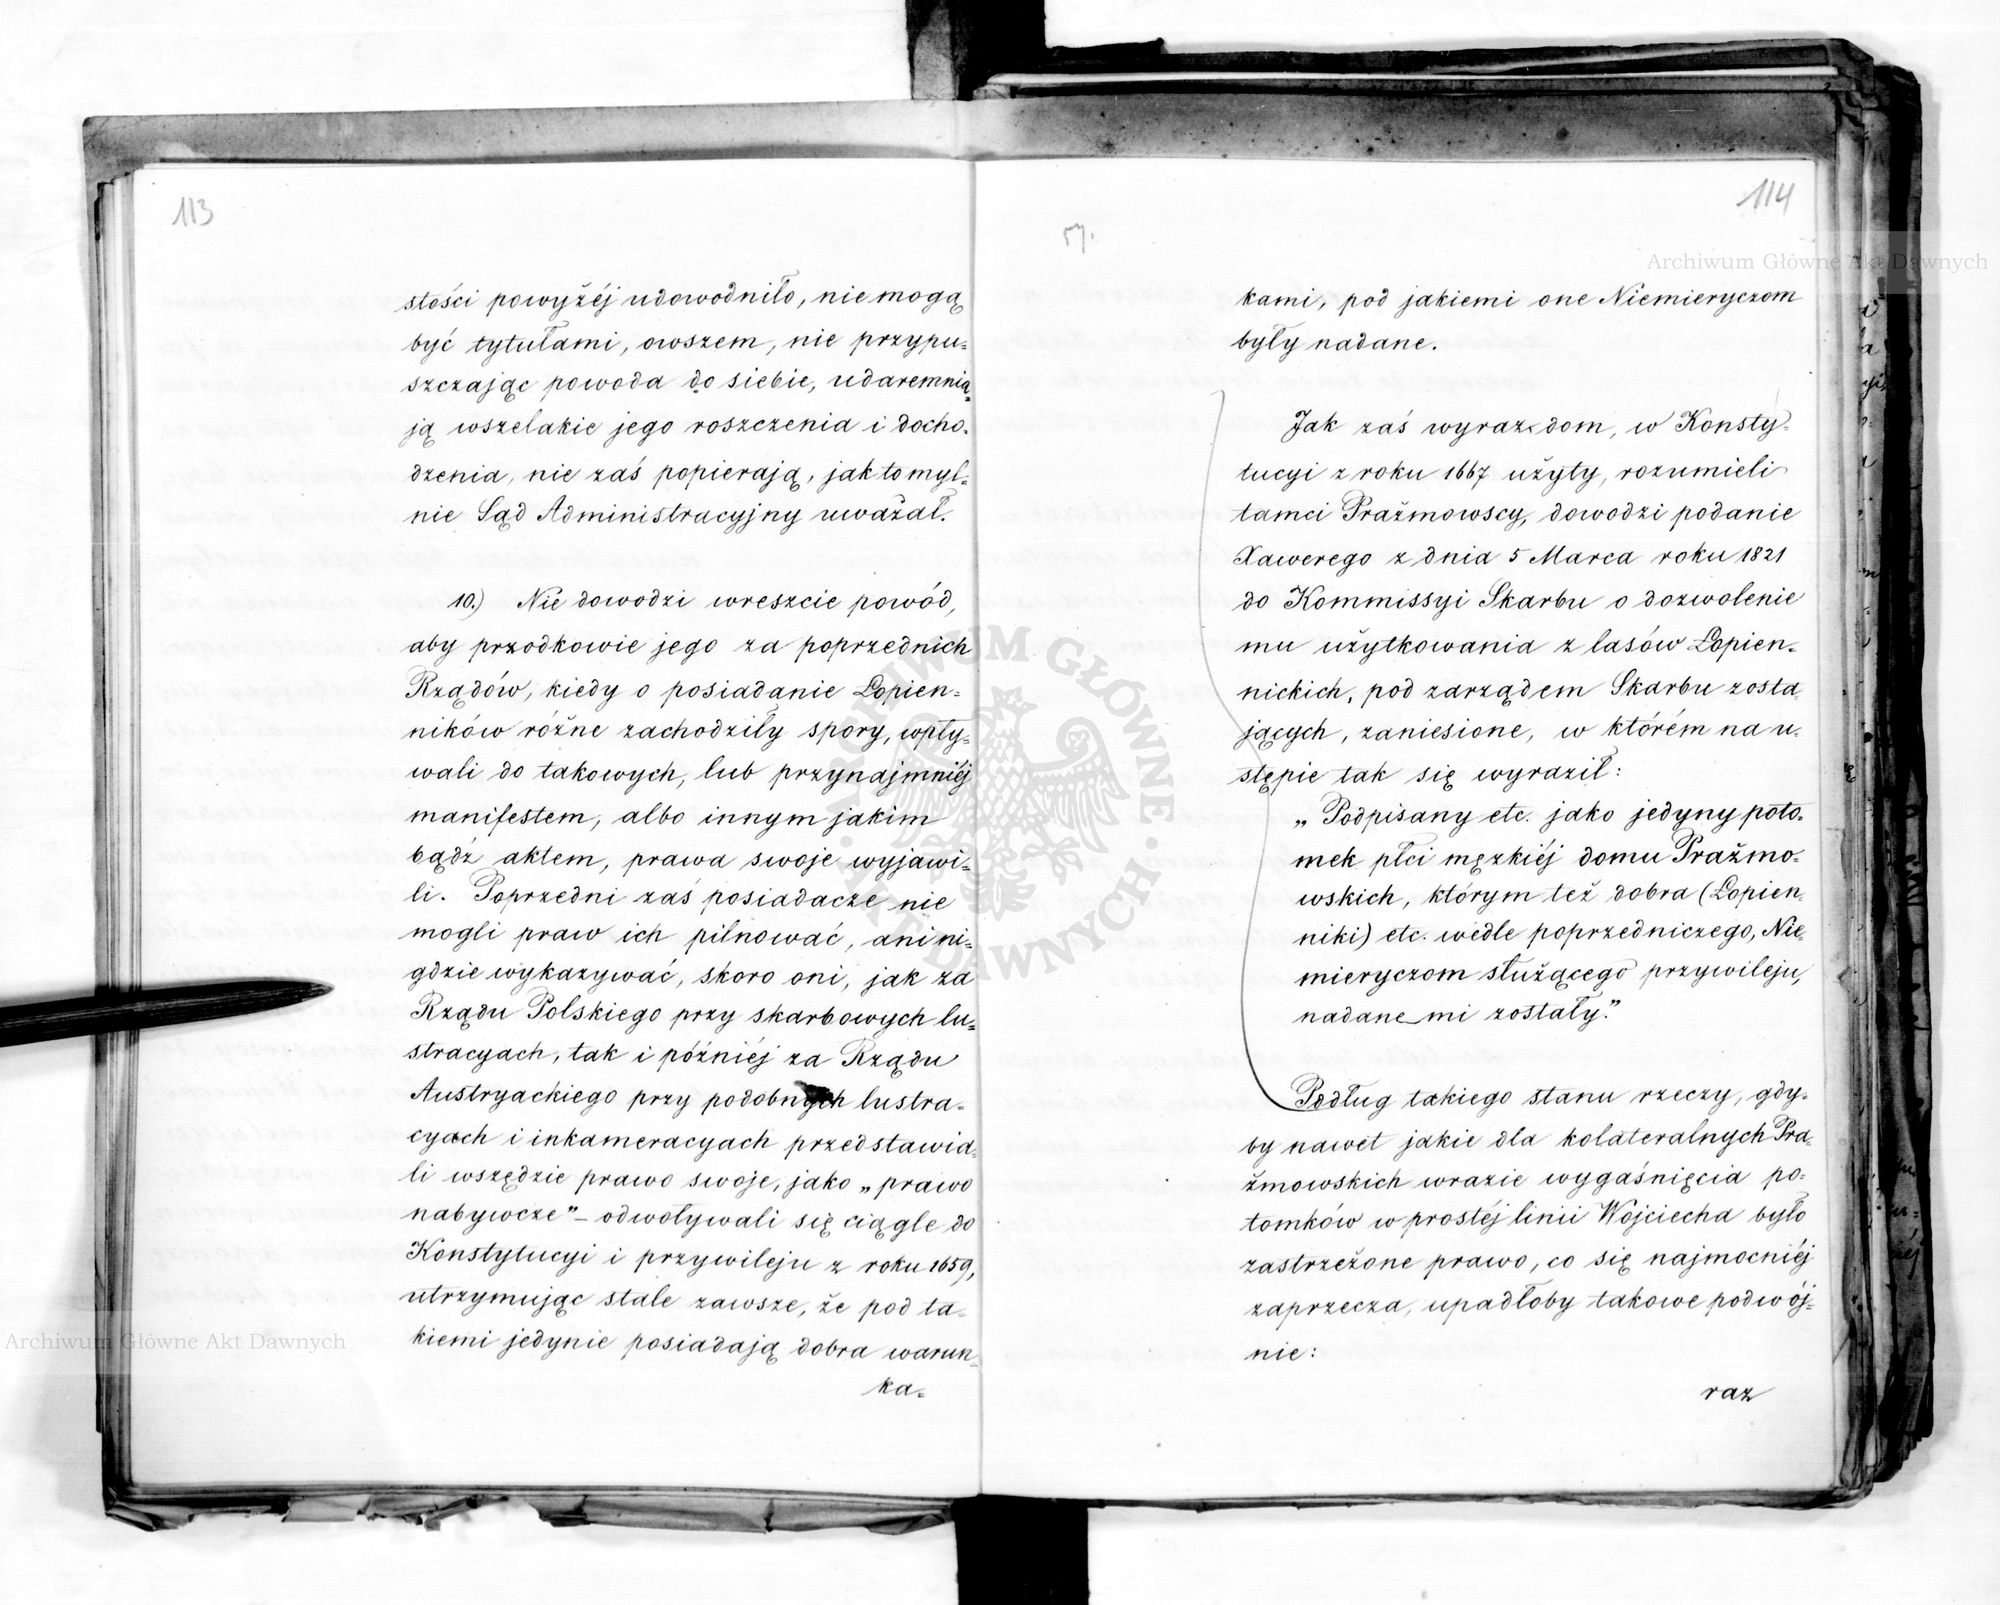 113
stości powyżéj udowodniło, nie mogą
być tytułami, owszem, nie przypu=
szczając powoda do siebie, udaremnia=
ją wszelakie jego roszczenia i docho=
dzenia, nie zaś popierają, jak to myl=
nie Sąd Administracyjny uważał.
10.) Nie dowodzi wreszcie powód,
aby przodkowie jego za poprzednich
Rządów, kiedy o posiadanie Łopien=
ników różne zachodziły spory, wpły=
wali do takowych, lub przynajmniéj
manifestem, albo innym jakim
bądź aktem, prawa swoje wyjawi=
li. Poprzedni zaś posiadacze nie
mogli praw ich pilnować, ani ni=
gdzie wykazywać, skoro oni, jak za
Rządu Polskiego przy skarbowych lu=
stracyach, tak i późniéj za Rządu
Austryackiego przy podobnych lustra=
cyach i inkameracyach przedstawia=
li wszędzie prawo swoje, jako „prawo
nabywcze" – odwoływali się ciągle do
Konstytucyi i przywileju z roku 1659,
utrzymując stale zawsze, że pod ta=
kiemi jedynie posiadają dobra warun=
ka=
114
57.
kami, pod jakiemi one Niemieryczom
były nadane.
Jak zaś wyraz dom, w Konsty=
tucyi z roku 1667 użyty, rozumieli
tamci Prażmowscy, dowodzi podanie
Xawerego z dnia 5 Marca roku 1821
do Kommissyi Skarbu o dozwolenie
mu użytkowania z lasów Łopien=
nickich, pod zarządem Skarbu zosta=
jących, zaniesione, w którém na u=
stępie tak się wyraził:
„Podpisany etc. jako jedyny poto=
mek płci męzkiéj domu Prażmo=
wskich, którym też dobra (Łopien=
niki) etc. wedle poprzedniczego, Nie=
mieryczom służącego przywileju,
nadanemi zostały."
Podług takiego stanu rzeczy, gdy=
by nawet jakie dla kolateralnych Pra=
żmowskich wrazie wygaśnięcia po=
tomków w prostéj linii Wojciecha było
zastrzeżone prawo, co się najmocniéj
zaprzecza, upadłoby takowe podwój=
nie:
raz
Archiwum Główne Akt Dawnych
Archiwum Główne Akt Dawnych
ARCHIWUM GŁÓWNE AKT DAWNYCH